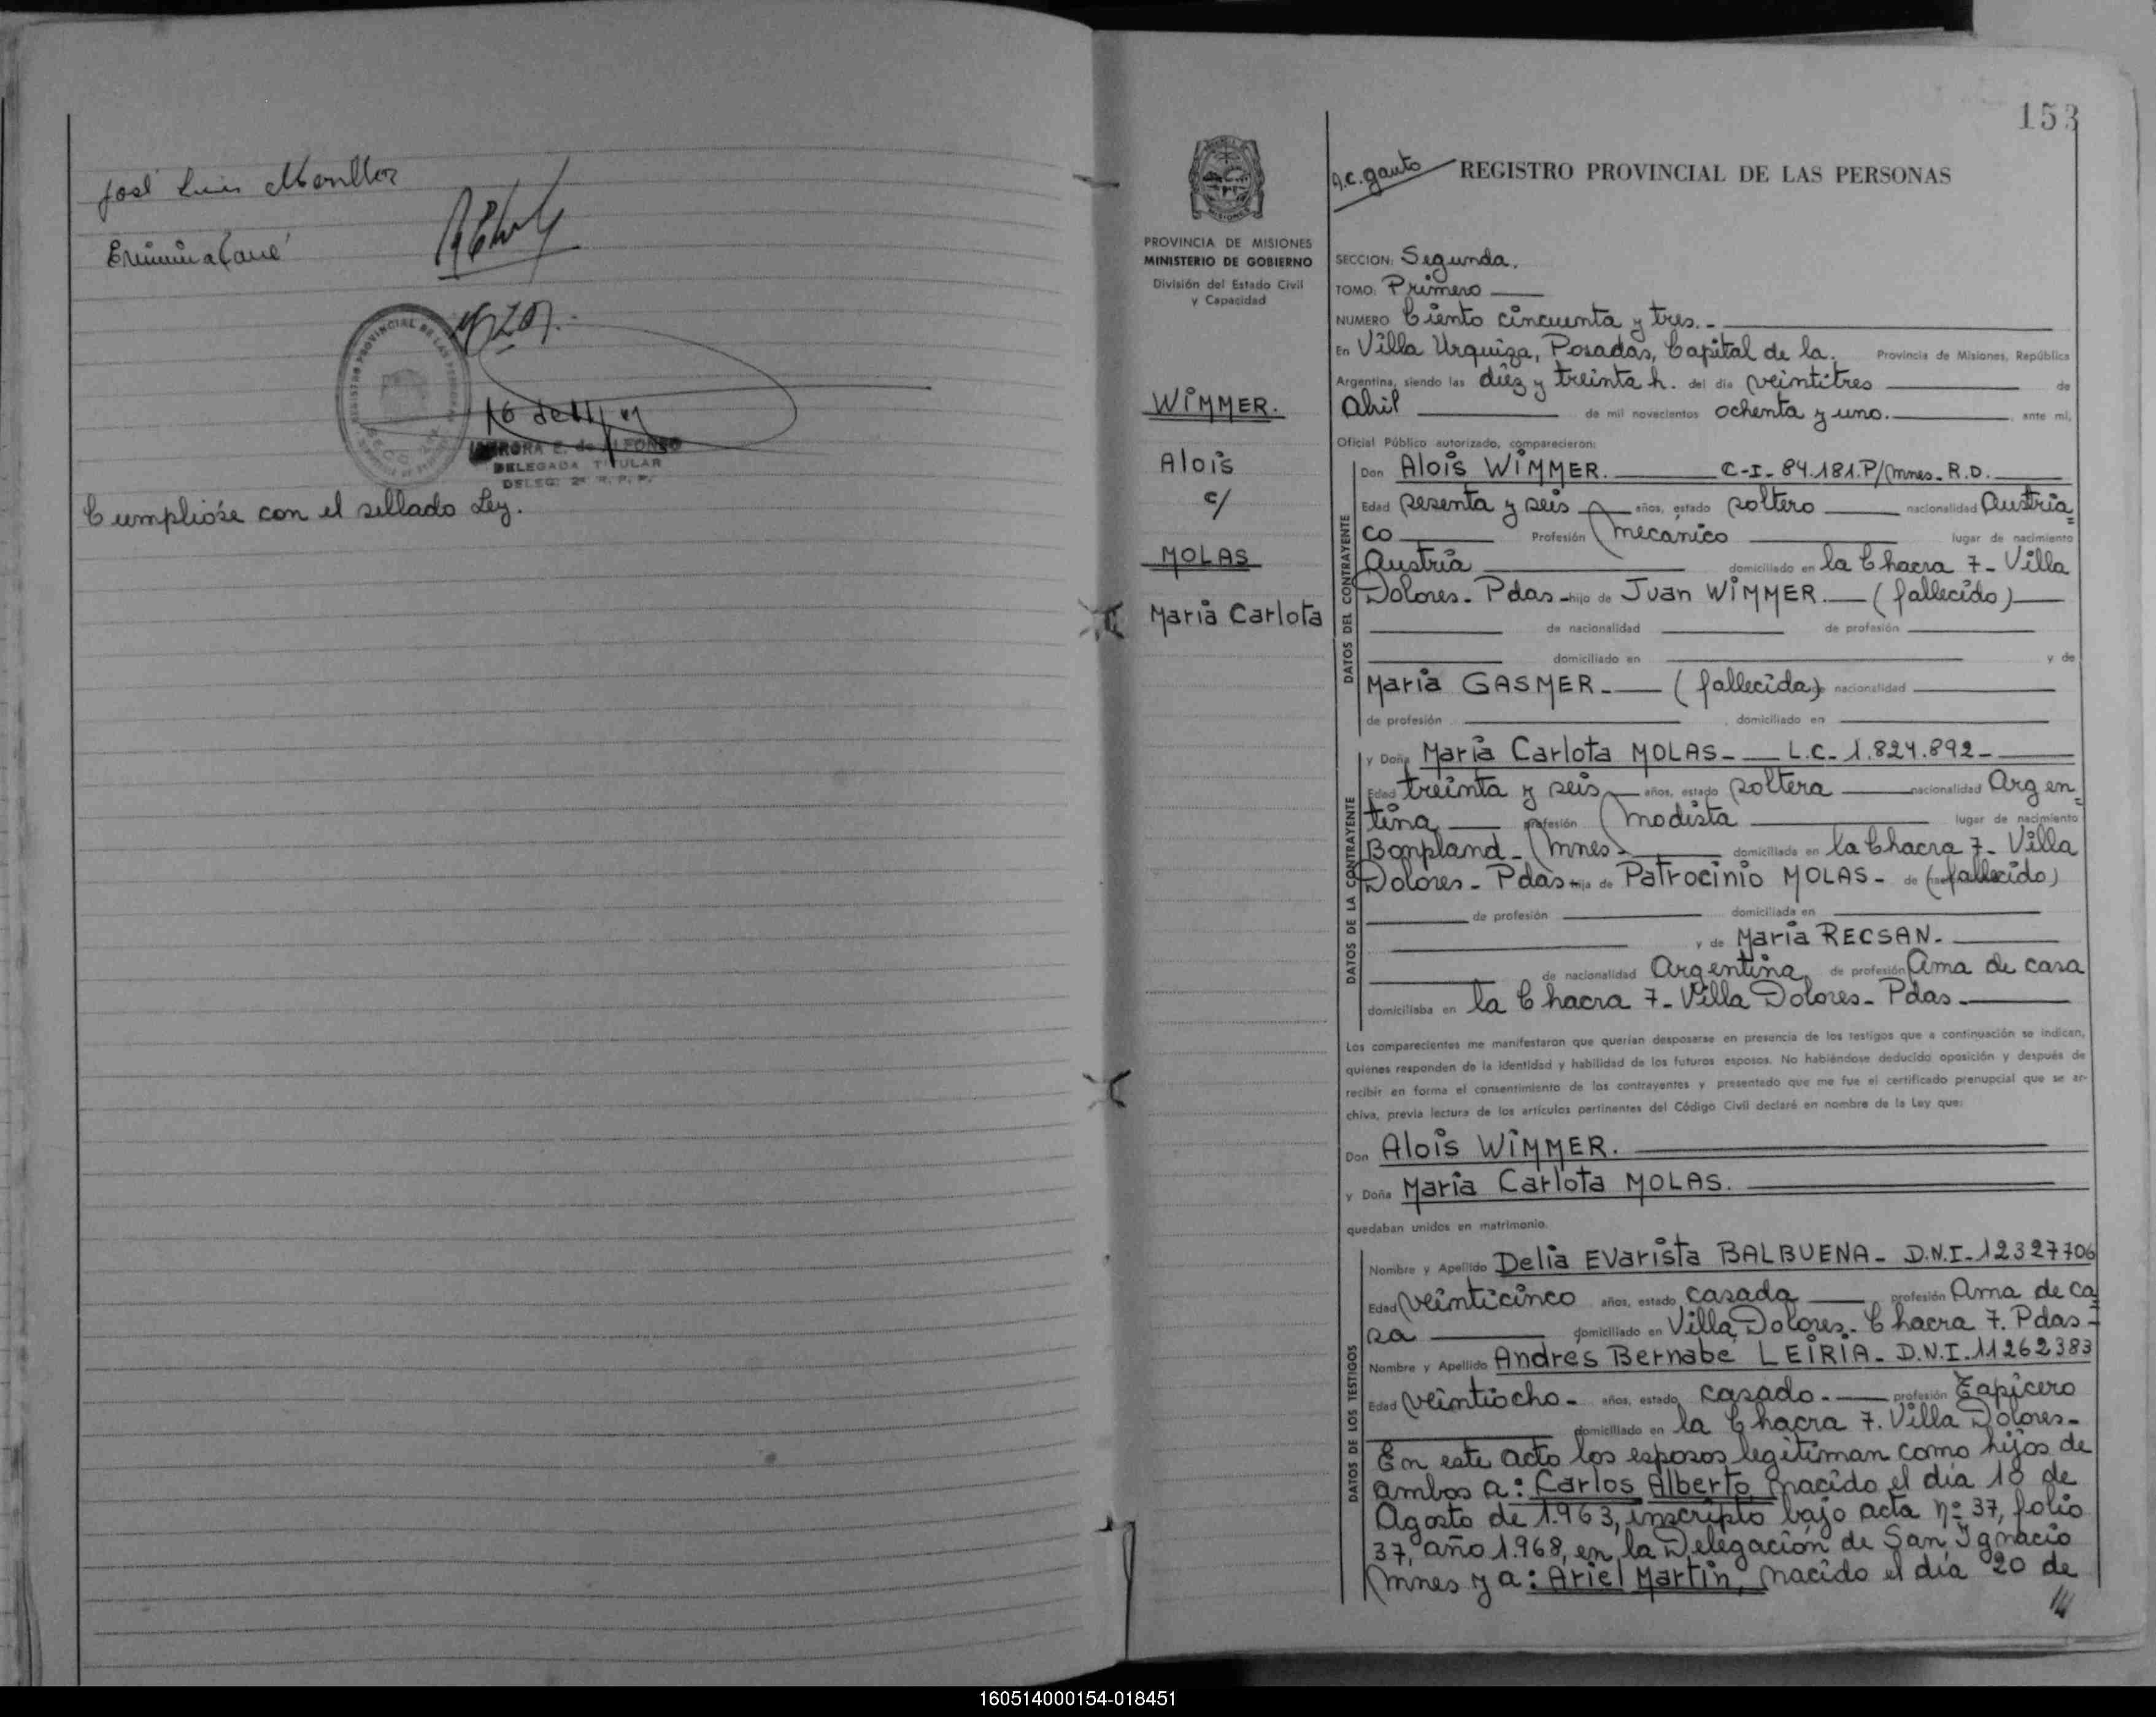 José Luis
Cumplióse con el sellado Ley.
REGISTRO PROVINCIAL DE LAS PERSONAS
AURORA E. de ALFONSO
DELEGADA TITULAR
DELEG. 2ª R. P. P.
153
PROVINCIA DE MISIONES
MINISTERIO DE GOBIERNO
División del Estado Civil
y Capacidad
WIMMER.
Alois
c/
MOLAS
Maria Carlota
A.C. Gauto
REGISTRO PROVINCIAL DE LAS PERSONAS
SECCION: Segunda.
TOMO: Primero
NUMERO Ciento cincuenta y tres.-
En Villa Urquiza, Posadas, Capital de la. Provincia de Misiones, República
Argentina, siendo las diez y treinta h. del día veintitres de
Abril de mil novecientos ochenta y uno. , ante mi,
Oficial Público autorizado, comparecieron:
DATOS DEL CONTRAYENTE
Don Alois WIMMER. C-I- 84.181.P/Mnes-R.D.
Edad sesenta y seis años, estado soltero nacionalidad Austria=
co Profesión mecánico lugar de nacimiento
Austria domiciliado en la Chacra 7- Villa
Dolores- Pdas- hijo de Juan WIMMER. (fallecido)
de nacionalidad de profesión
domiciliado en y de
Maria GASMER- (fallecida) nacionalidad
de profesión , domiciliado en
DATOS DE LA CONTRAYENTE
y Doña Maria Carlota MOLAS- L.C- 1.824.892-
Edad treinta y seis años, estado soltera nacionalidad Argen=
tina profesión modista lugar de nacimiento
Bonpland- Mnes- domiciliada en la Chacra 7- Villa
Dolores- Pdas- hija de Patrocinio MOLAS- de (fallecido)
de profesión domiciliada en
y de Maria RECSAN-
de nacionalidad Argentina, de profesión Ama de casa
domiciliaba en la Chacra 7- Villa Dolores- Pdas-
Los comparecientes me manifestaron que querían desposarse en presencia de los testigos que a continuación se indican,
quienes responden de la identidad y habilidad de los futuros esposos. No habiéndose deducido oposición y después de
recibir en forma el consentimiento de los contrayentes y presentado que me fue el certificado prenupcial que se ar-
chiva, previa lectura de los artículos pertinentes del Código Civil declaré en nombre de la Ley que:
Don Alois WIMMER.
y Doña Maria Carlota MOLAS.
quedaban unidos en matrimonio.
DATOS DE LOS TESTIGOS
Nombre y Apellido Delia Evarista BALBUENA- D.N.I-12327706
Edad veinticinco años, estado casada profesión Ama de ca=
sa domiciliado en Villa Dolores- Chacra 7. Pdas-
Nombre y Apellido Andres Bernabe LEIRIA- D.N.I.11262383
Edad veintiocho- años, estado casado- profesión Tapicero
domiciliado en la Chacra 7. Villa Dolores-
En este acto los esposos legitiman como hijos de
ambos a: Carlos Alberto, nacido el día 18 de
Agosto de 1.963, inscripto bajo acta nº 37, folio
37, año 1.968, en la Delegación de San Ignacio
Mnes y a: Ariel Martin, nacido el día 20 de
///
160514000154-018451